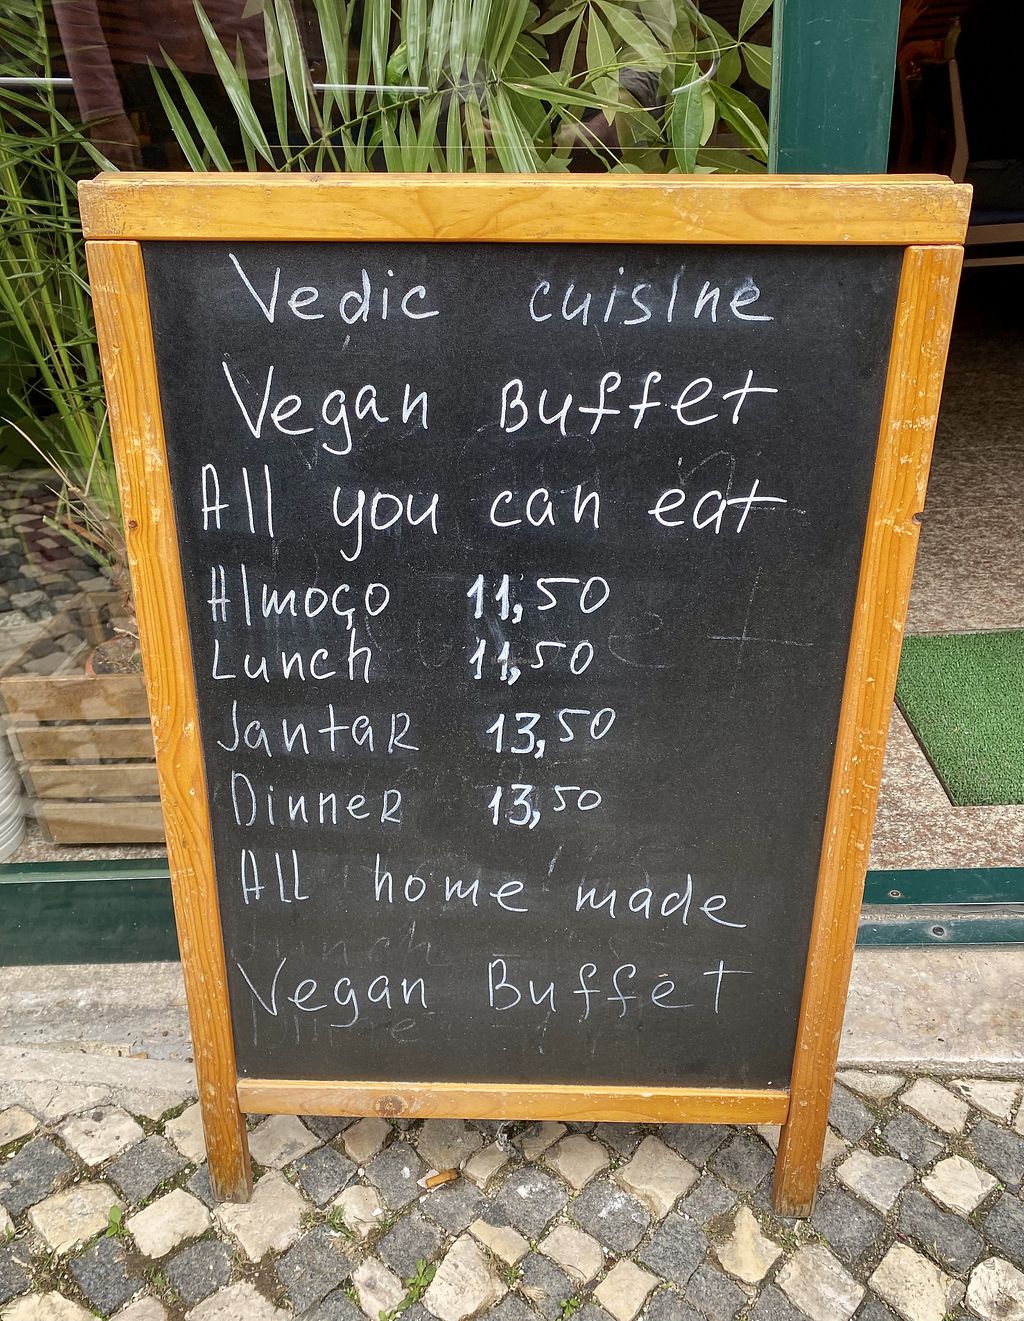 Vedic cuisine
Vegan Buffet
All you can eat
Almoço 11,50
Lunch 11,50
Jantar 13,50
Dinner 13,50
All home made
Vegan Buffet